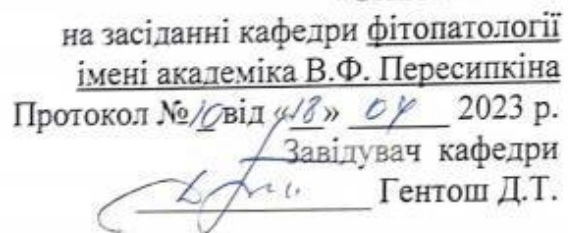 на засіданні кафедри фітопатології
імені академіка В.Ф. Пересипкіна
Протокол №10 від «18» 04 2023 р.
Завідувач кафедри
Гентош Д.Т.